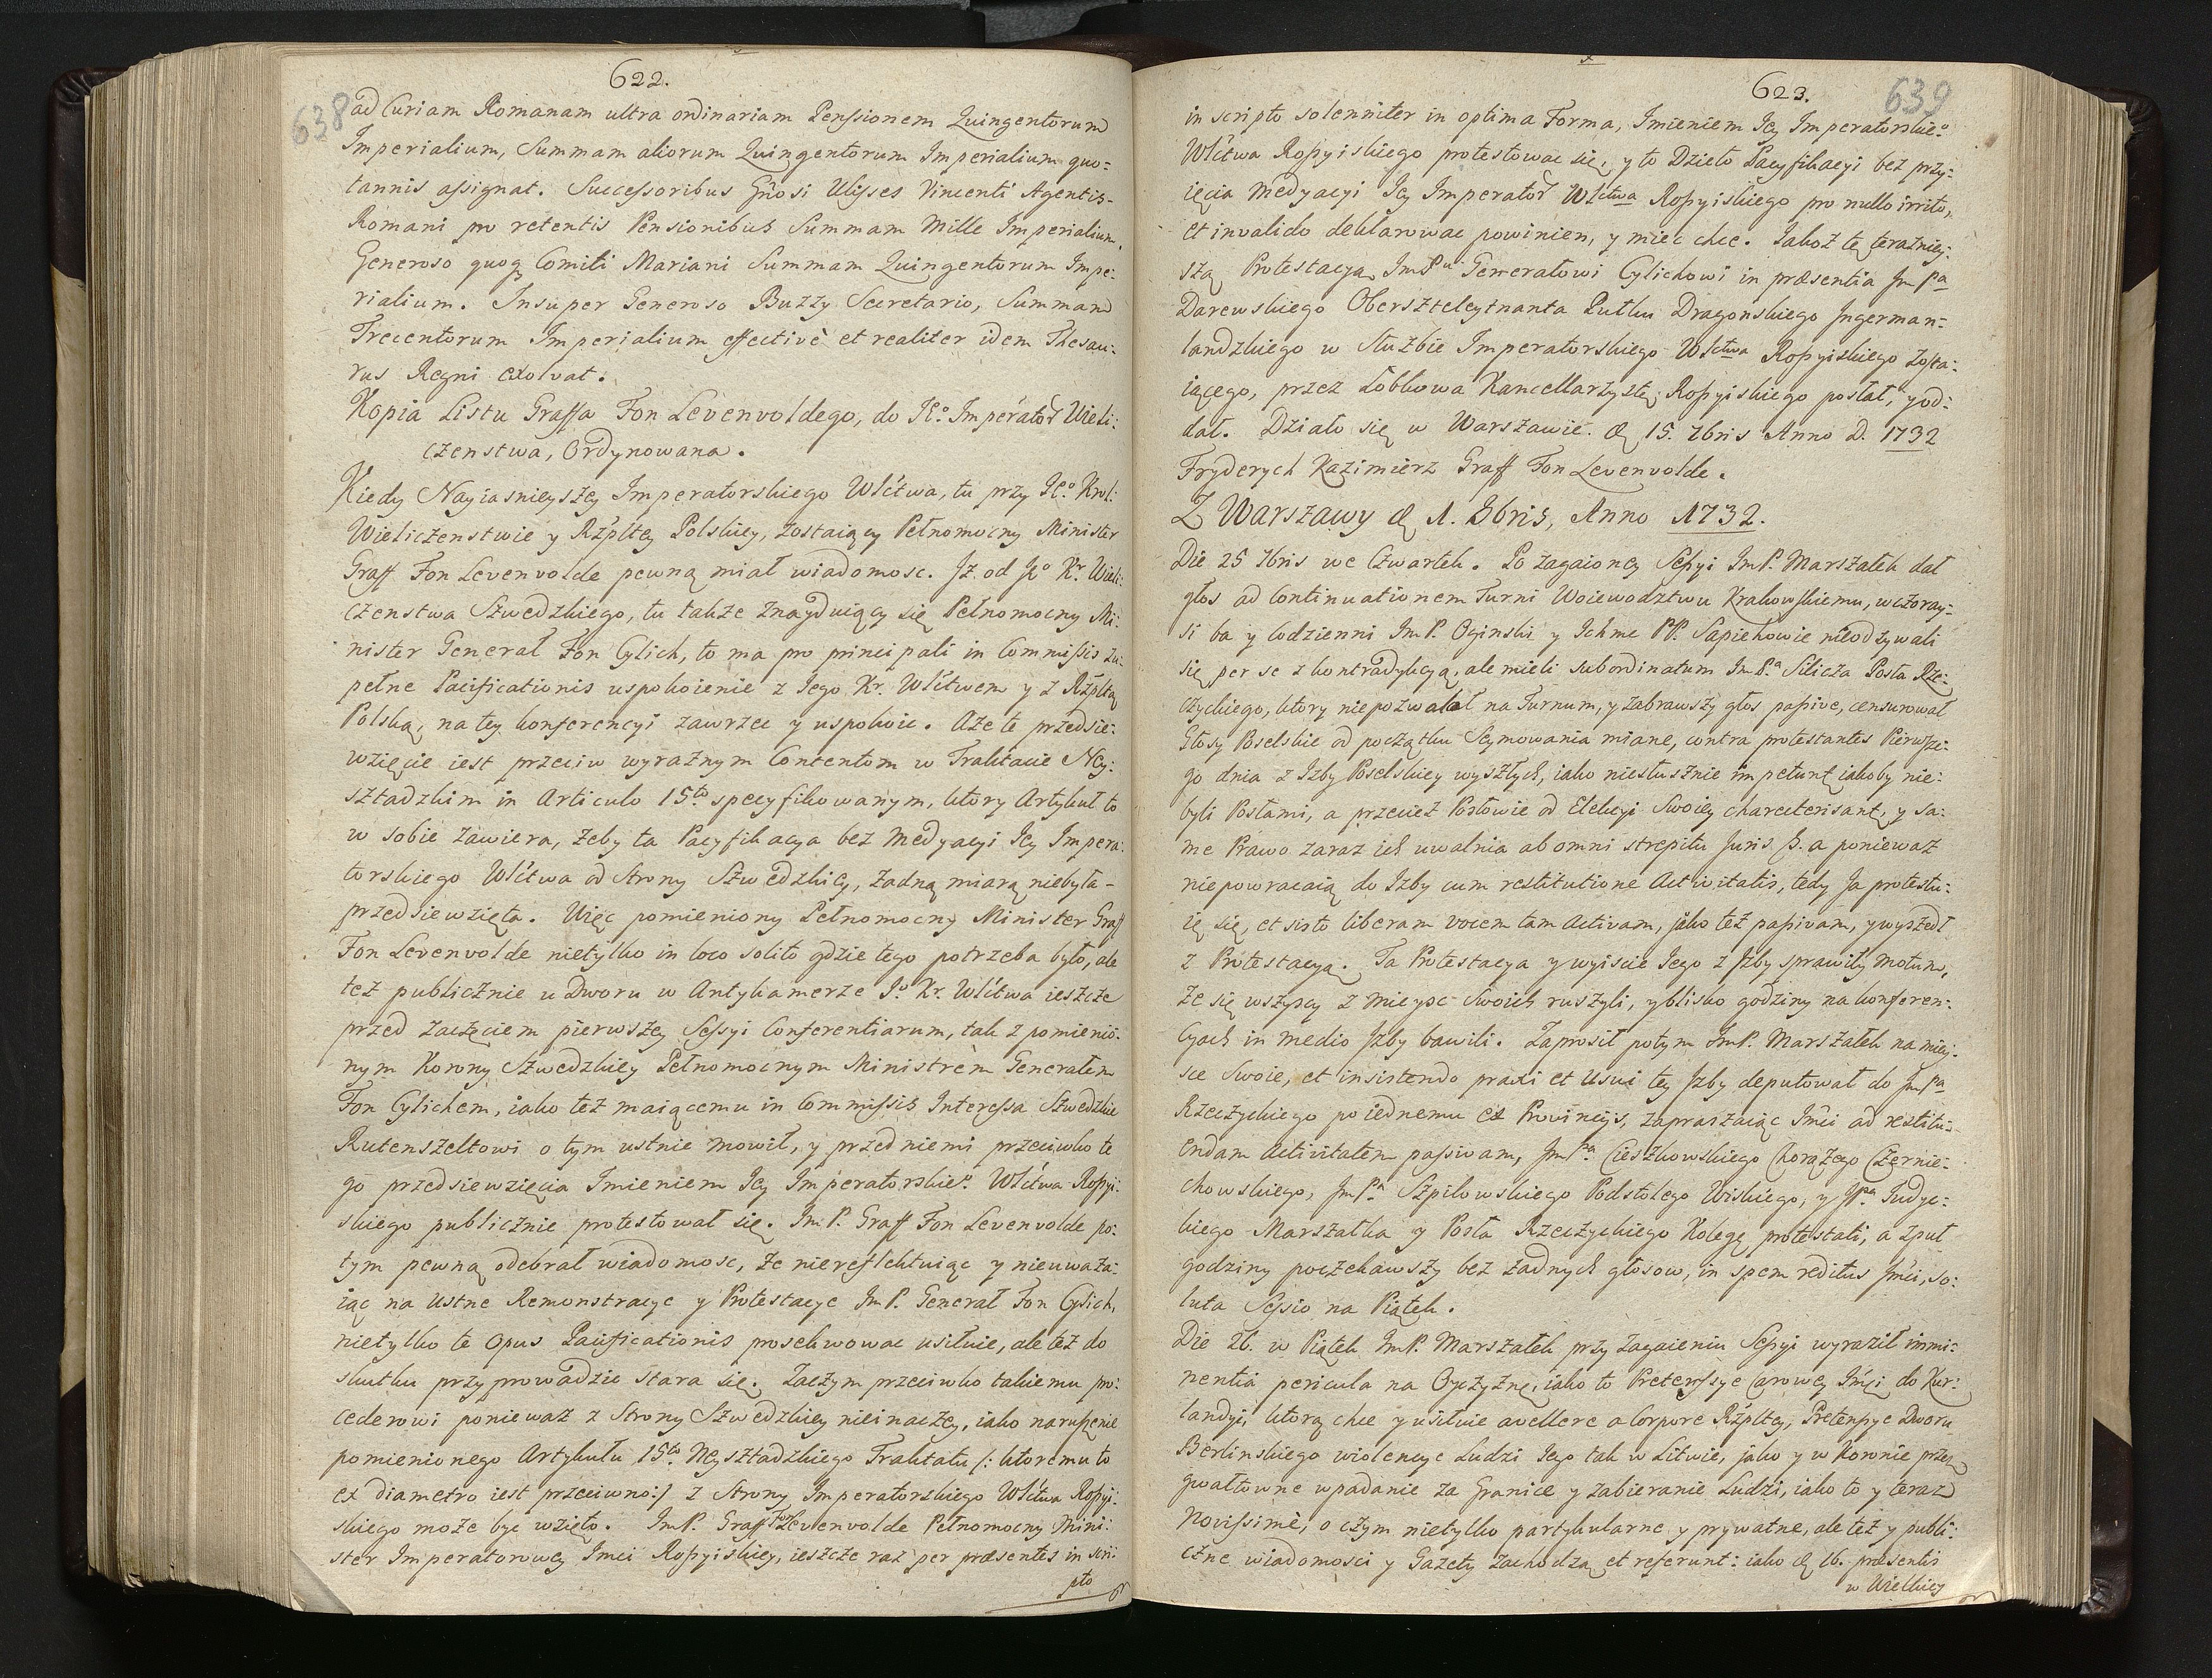 622.
638
ad Curiam Romanam ultra ordinariam Pensionem Quingentorum
Imperialium, Summam aliorum Quingentorum Imperialium quo-
tannis assignat. Successoribus Gnosi Ulisses Vincenti Agentis
Romani pro retentis Pensionibus Summam Mille Imperalium.
Generoso quoq Comiti Mariani Summam Quingentorum Impe-
rialium. Insuper Generoso Buzzy Secretario, Summam
Trecentorum Imperialium effectivè et realiter idem Thesau-
rus Regni exolvat.
Kopia Listu Graffa Fon Levenvoldego, do Jego Imperator Wieli-
czenstwa, Ordynowana.
Kiedy Nayiasnieyszey Imperatorskiego Wśctwa, tu przy Jeo Krol:
Wieliczenstwie y Rzpltey Polskiey, zostaiący Pełnomocny Minister
Graff Fon Levenvolde pewną miał wiadomosc. Jż od Jeo Kr. Wieli-
czenstwa Szwedzkiego, tu także znayduiący się Pełnomocny Mi-
nister Generał Fon Cylich, to ma pro principali in Commissis zu-
pełne Pacificationis uspokoienie z Jego Kr. Wśctwem y z Rzpltą
Polską, na tey konferencyi zawrzec y uspokoic. Aże te przedsie-
wzięcie iest przeciw wyraznym Contentom w Traktacie Ney-
sztadzkim in Articulo 15to specyfikowanym, ktory Artykuł to
w sobie zawiera, żeby ta Pacyfikacya bez Medyacyi Jey Impera-
torskiego Wśctwa od Strony Szwedzkiey, żadną miarą niebyła
przedsiewzięta. Więc pomieniony Pełnomocny Minister Graff
Fon Levenvolde nietylko in loco solito gdzie tego potrzeba było, ale
też publicznie u Dworu w Antykamerze Jo Kr. Wśctwa ieszcze
przed zaczęciem pierwszey Sessyi Conferentiarum, tak z pomienio-
nym Korony Szwedzkiey Pełnomocnym Ministrem Generałem
Fon Cylichem, iako też maiącemu in Commissis Interessa Szwedzkie
Rutenszeltowi o tym ustnie mowił, y przed niemi przeciwko te
go przedsiewzięcia Imieniem Jey Imperatorskieo Wśctwa Rossyi-
skiego publicznie protestował się. Im P. Graff Fon Levenvolde po-
tym pewną odebrał wiadomosc, że niereflektuiąc y nieuważa-
iąc na Ustne Remonstracye y Protestacye Im P. Generał Fon Cylich,
nietylko te Opus Pacificationis prosekwowac usiłuie, ale też do
skutku przyprowadzic stara się. Zaczym przeciwko takiemu pro-
cederowi ponieważ z Strony Szwedzkiey nieinaczey, iako naruszenie
pomienionego Artykułu 15to Neysztadzkiego Traktatu /: ktoremu to
ex diametro iest przeciwno:/ z Strony Imperatorskiego Wśctwa Rossyi-
skiego może byc wzięto. Im P. Graff Fon Levenvolde Pełnomocny Mini-
ster Imperatorowey Jmci Rossyiskiey, ieszcze raz per præsentes in scri-
pto
623.
639
in scripto solenniter in optima Forma, Imieniem Jey Imperatorskieo
Wśctwa Rossyiskiego protestowac się, y to Dzieło Pacyfikacyi bez przy-
ięcia Medyacyi Jey Imperator Wśctwa Rossyiskiego pro nullo irrito,
et invalido deklarowac powinien, y miec chce. Jakoż tę teraźniey-
szą Protestacyą Im Pu Generałowi Cylichowi in præsentia Im Pa
Darewskiego Oberszteleytnanta Pułku Dragonskiego Ingerman-
landzkiego w Służbie Imperatorskiego Wśctwa Rossyiskiego zosta-
iącego, przez Łobkowa Kancellarzystę Rossyiskiego posłał, y od-
dał. Działo się w Warszawie. d 15. 7bris Anno D. 1732
Fryderych Kazimierz Graff Fon Levenvolde.
Z Warszawy d 1. 8bris, Anno 1732.
Die 25 7bris we Czwartek. Po zagaioney Sessyi Im P. Marszałek dał
głos ad Continuationem Turni Woiewodztwu Krakowskiemu, wczoray-
si ba y codzienni Im P. Oginski y Ichmc PP. Sapiehowie nieodzywali
się per se z kontradykcyą, ale mieli subordinatum Im Pa Silicza Posła Rze-
czyckiego, ktory niepozwalał na Turnum, y zabrawszy głos passive, censurował
Głosy Poselskie od początku Seymowania miane, contra protestantes Pierwsze-
go dnia z Izby Poselskiey wyszłych, iako niesłusznie impetunt iakoby nie-
byli Posłami, a przecież Posłowie od Elekcyi Swoiey charcterisant, y sa-
me Prawo zaraz ich uwalnia ab omni strepitu Juris. a ponieważ
niepowracaią do Izby cum restitutione Activitatis, tedy Ja protestu-
ię się, et sisto liberam vocem tam Activam, jako też passivam, y wyszedł
z Protestacyą. Ta Protestacya y wyiscie Jego z Izby sprawiły motum,
że się wszyscy z mieysc Swoich ruszyli, y blisko godziny na konferen-
cyach in medio Izby bawili. Zaprosił potym Im P. Marszałek na miey-
sce Swoie, et insistendo praxi et Usui tey Izby deputował do Im Pa
Rzeczyckiego po iednemu ex Provincijs, zapraszaiąc Imci ad restitu-
endam Activitatem passivam, Im Pa Cieszkowskiego Chorążego Czernie-
chowskiego, Im Pa Szpilowskiego Podstolego Wiskiego, y JPa Judyc-
kiego Marszałka y Posła Rzeczyckiego Kolegę protestati, a zpuł
godziny poczekawszy bez żadnych głosow, in spem reditus Jmci, so-
luta Sessio na Piątek.
Die 26. w Piątek Im P. Marszałek przy zagaieniu Sessyi wyraził immi-
nentia pericula na Oyczyznę, iako to Pretensye Carowey Imci do Kur-
landyi, ktorą chce y usiłuie avellere a Corpore Rzpltey, Pretensye Dworu
Berlinskiego wiolencye Ludzi Jego tak w Litwie, jako y w Koronie przez
gwałtowne wpadanie za Granice y zabieranie Ludzi, iako to y teraz
Novissimè, o czym nietylko partykularne y prywatne, ale też y publi-
czne wiadomosci y Gazety zachodzą et referunt: iako d 16. præsentis
w Wielkiey